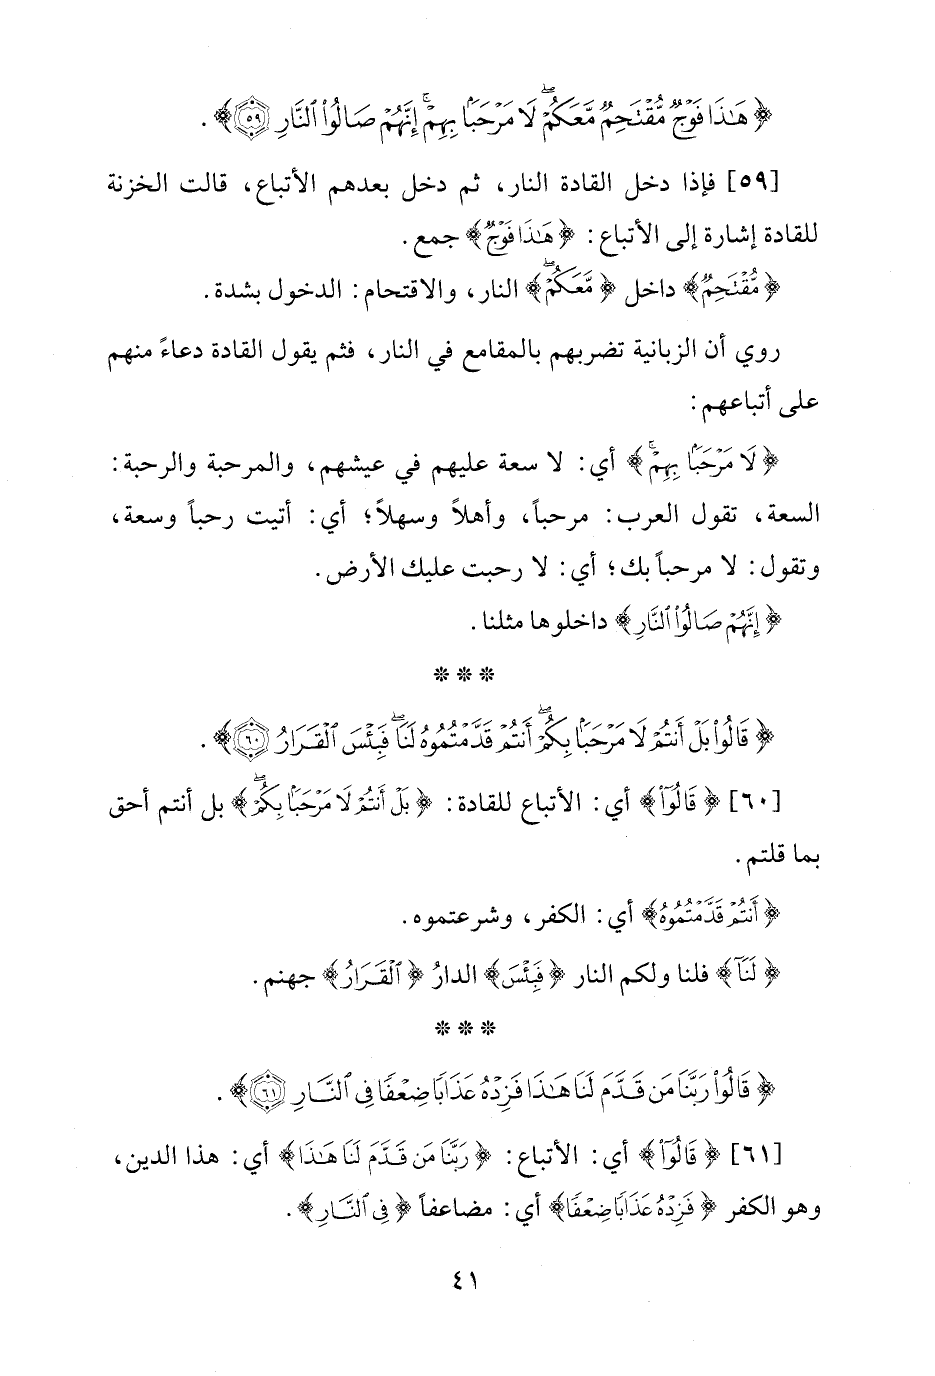 ﴿ هَٰذَا فَوْجٌ مُّقْتَحِمٌ مَّعَكُمْ ۖ لَا مَرْحَبًا بِهِمْ ۚ إِنَّهُمْ صَالُوا۟ ٱلنَّارِ ٥٩ ﴾ .
[٥٩] فإذا دخل القادة النار، ثم دخل بعدهم الأتباع، قالت الخزنة
للقادة إشارة إلى الأتباع: ﴿ هَٰذَا فَوْجٌ ﴾ جمع.
﴿ مُّقْتَحِمٌ ﴾ داخل ﴿ مَّعَكُمْ ۖ ﴾ النار، والاقتحام: الدخول بشدة.
روي أن الزبانية تضربهم بالمقامع في النار، فثم يقول القادة دعاءً منهم
على أتباعهم:
﴿ لَا مَرْحَبًا بِهِمْ ۚ ﴾ أي: لا سعة عليهم في عيشهم، والمرحبة والرحبة:
السعة، تقول العرب: مرحباً، وأهلاً وسهلاً؛ أي: أتيت رحباً وسعة،
وتقول: لا مرحباً بك؛ أي: لا رحبت عليك الأرض.
﴿ إِنَّهُمْ صَالُوا۟ ٱلنَّارِ ﴾ داخلوها مثلنا.
* * *
﴿ قَالُوا۟ بَلْ أَنتُمْ لَا مَرْحَبًا بِكُمْ ۖ أَنتُمْ قَدَّمْتُمُوهُ لَنَا ۖ فَبِئْسَ ٱلْقَرَارُ ٦٠ ﴾ .
[٦٠] ﴿ قَالُوٓا۟ ﴾ أي: الأتباع للقادة: ﴿ بَلْ أَنتُمْ لَا مَرْحَبًا بِكُمْ ۖ ﴾ بل أنتم أحق
بما قلتم.
﴿ أَنتُمْ قَدَّمْتُمُوهُ ﴾ أي: الكفر، وشرعتموه.
﴿ لَنَآ ﴾ فلنا ولكم النار ﴿ فَبِئْسَ ﴾ الدارُ ﴿ ٱلْقَرَارُ ﴾ جهنم.
* * *
﴿ قَالُوا۟ رَبَّنَا مَن قَدَّمَ لَنَا هَٰذَا فَزِدْهُ عَذَابًا ضِعْفًا فِى ٱلنَّارِ ٦١ ﴾ .
[٦١] ﴿ قَالُوٓا۟ ﴾ أي: الأتباع: ﴿ رَبَّنَا مَن قَدَّمَ لَنَا هَٰذَا ﴾ أي: هذا الدين،
وهو الكفر ﴿ فَزِدْهُ عَذَابًا ضِعْفًا ﴾ أي: مضاعفاً ﴿ فِى ٱلنَّارِ ﴾ .
٤١